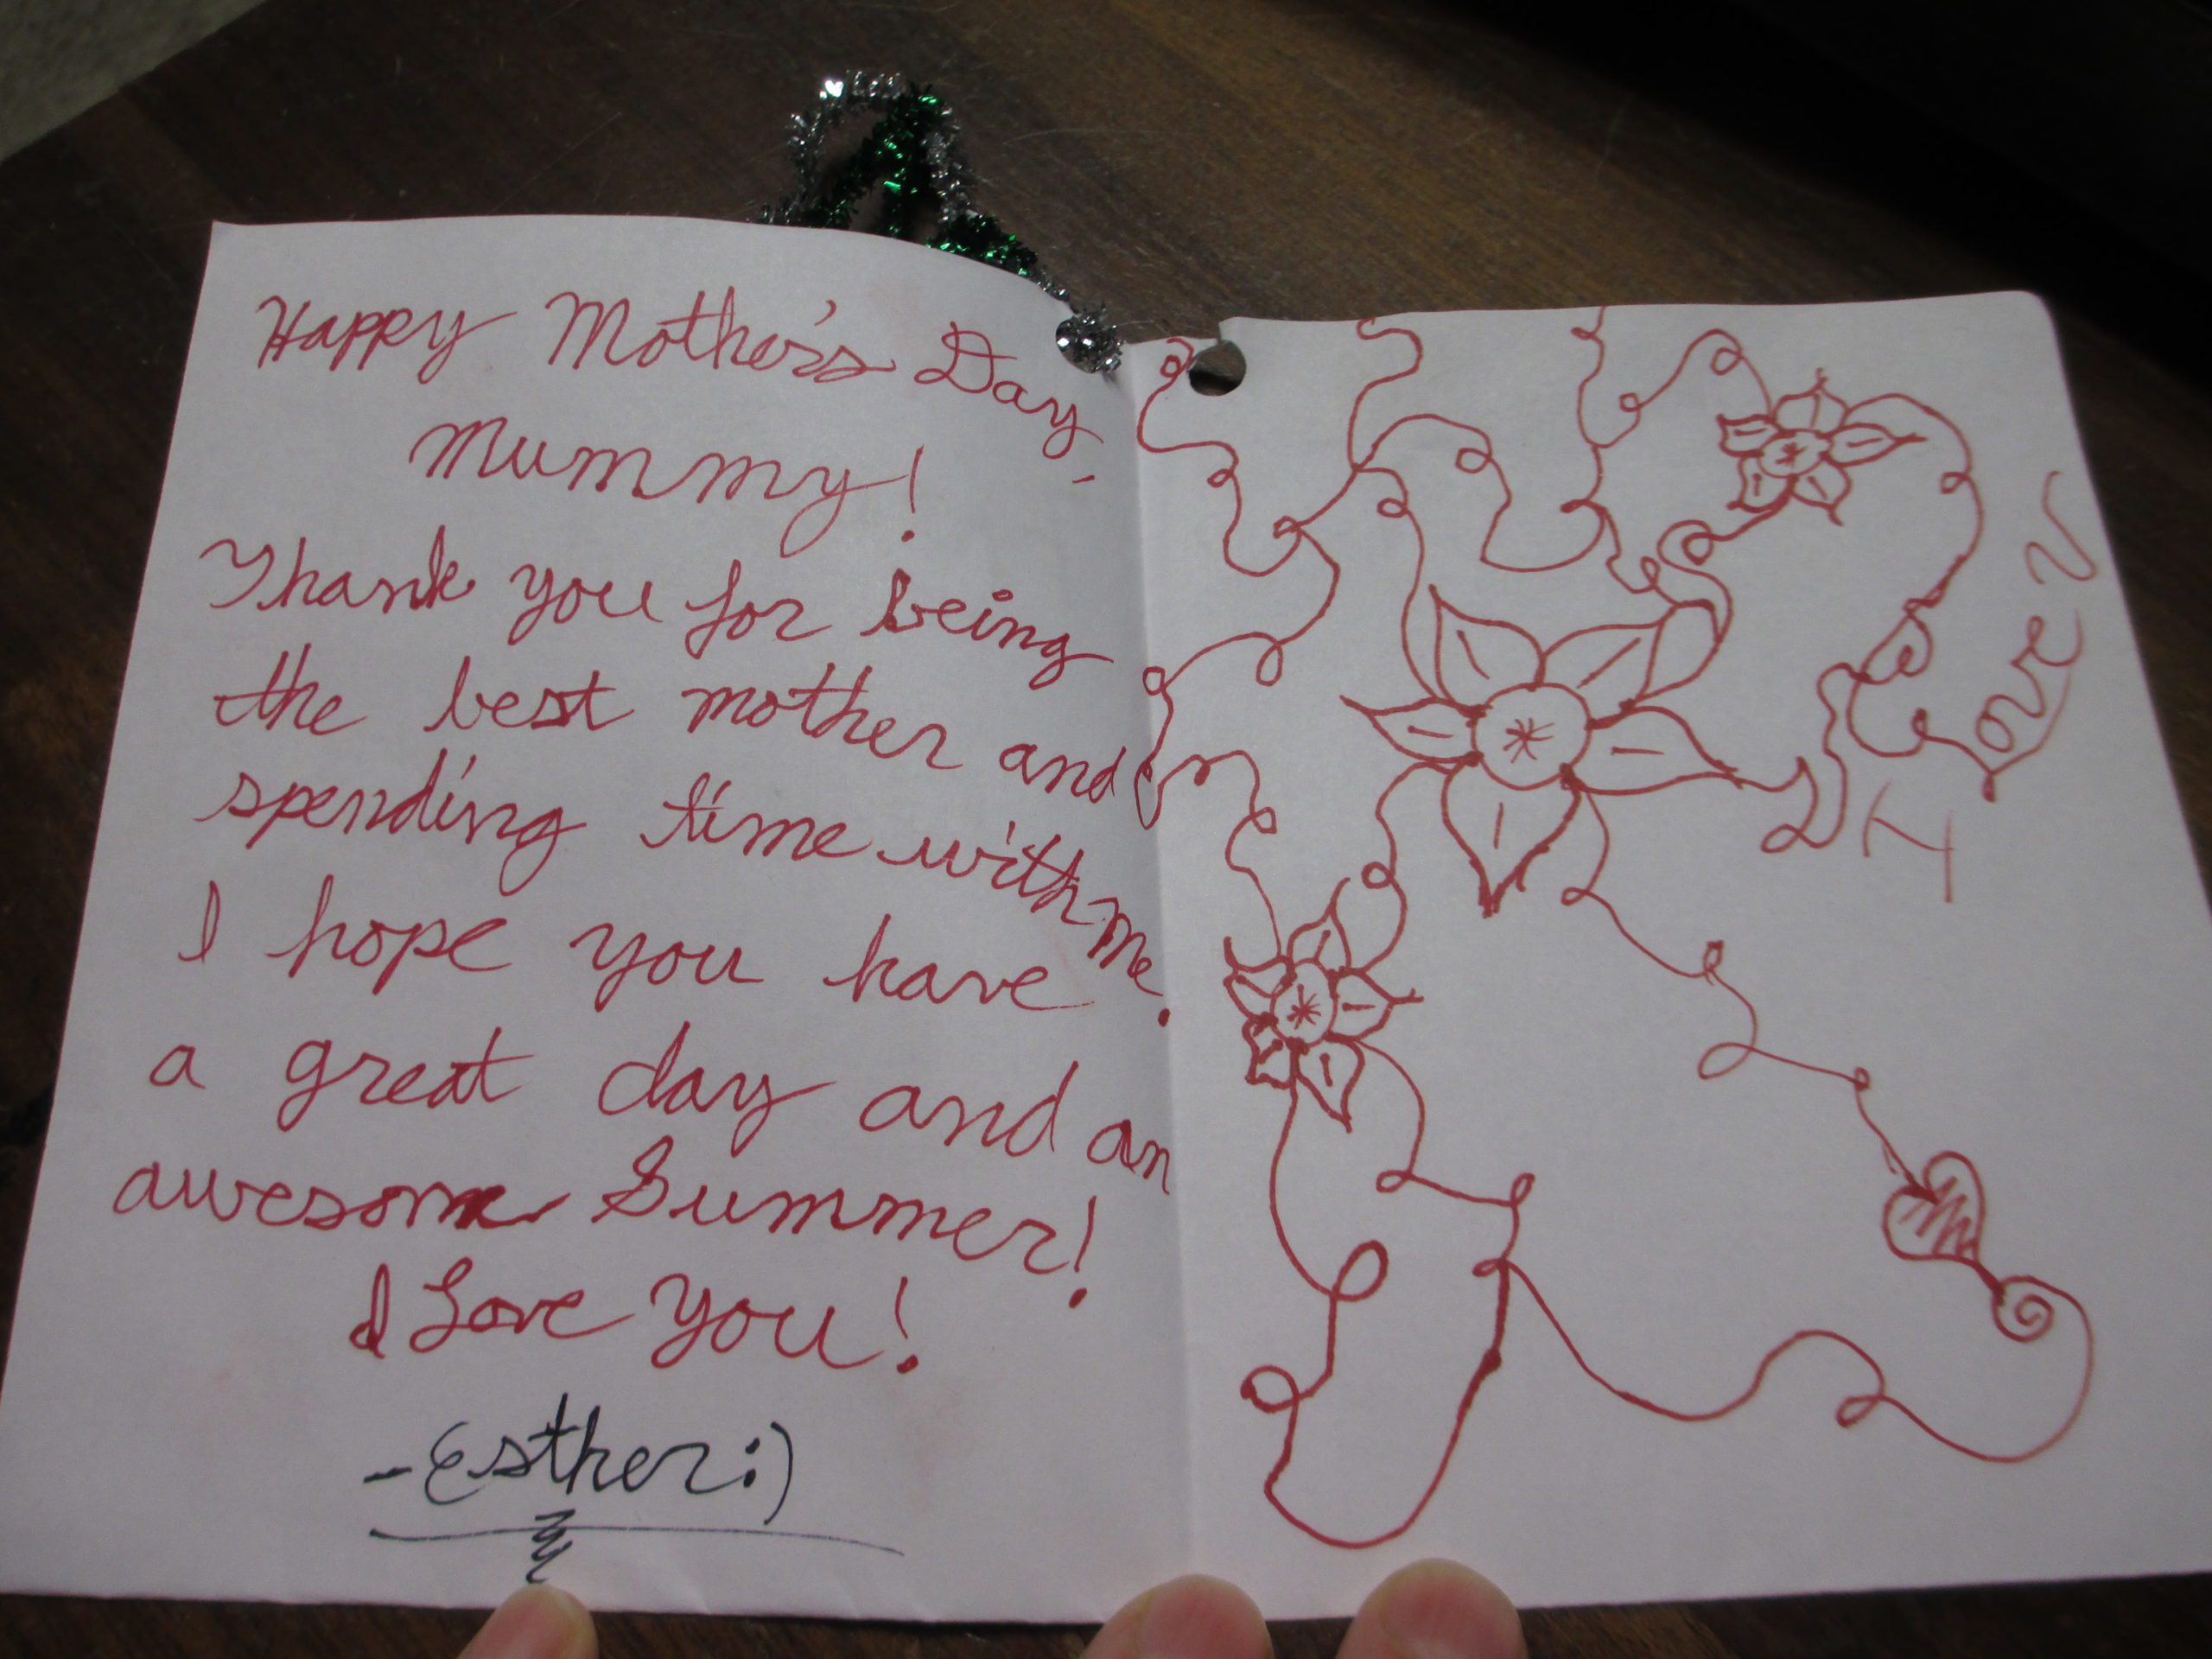 Happy Mother's Day,
Mummy!
Thank you for being
the best mother and
spending time with me.
I hope you have
a great day and an
awesome Summer!
I Love You!
-Esther:)
Love U